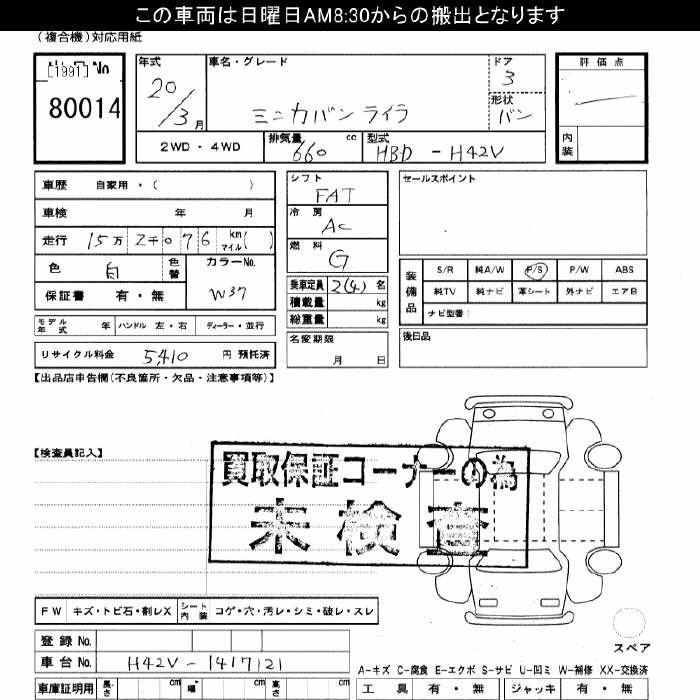 この車両は日曜日AM8:30からの搬出となります
(複合機)対応用紙
[1991] No
80014
年式
20/3月
車名・グレード
ミニカバン ライラ
ドア
3
形状
バン
評価点
内装
2WD・4WD
排気量 660 cc
型式 HBD - H42V
車歴 自家用・( )
車検 年 月
走行 15万 2千0 76 km マイル( )
色 白 色替
カラーNo.
W37
保証書 有・無
シフト
FAT
冷房
AC
燃料
G
乗車定員 2(4) 名
積載量 kg
総重量 kg
セールスポイント
装備品
S/R 純A/W P/S P/W ABS
純TV 純ナビ 革シート 外ナビ エアB
ナビ型番:
モデル年式 年 ハンドル 左・右 ディーラー・並行
リサイクル料金 5,410 円 預託済
名変期限
月 日
後日品
【出品店申告欄(不良箇所・欠品・注意事項等)】
【検査員記入】
買取保証コーナーの為
未検査
FW キズ・トビ石・割レX シート内装 コゲ・穴・汚レ・シミ・破レ・スレ
スペア
登録 No.
車台 No. H42V-1417121
A-キズ C-腐食 E-エクボ S-サビ U-凹ミ W-補修 XX-交換済
車庫証明用 長さ cm 幅 cm 高さ cm
工具 有・無 ジャッキ 有・無